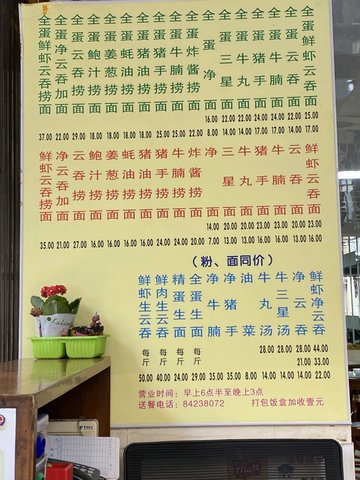 全蛋鲜虾云吞捞面
全蛋净云吞加面
全蛋云吞捞面
全蛋鲍汁捞面
全蛋姜葱捞面
全蛋蚝油捞面
全蛋猪油捞面
全蛋猪手捞面
全蛋牛腩捞面
全蛋炸酱捞面
全蛋净面
全蛋三星面
全蛋牛丸面
全蛋猪手面
全蛋牛腩面
全蛋云吞面
全蛋鲜虾云吞面
16.00 22.00 22.00 22.00 22.00 22.00 25.00
37.00 22.00 29.00 18.00 18.00 18.00
鲜虾云吞捞面
净云吞加面
云吞捞面
鲍汁捞面
姜葱捞面
蚝油捞面
猪油捞面
猪手捞面
牛腩捞面
炸酱捞面
净面
三星面
牛丸面
猪手面
牛腩面
云吞面
鲜虾云吞面
14.00 20.00 20.00 20.00 20.00 20.00 23.00
35.00 21.00 27.00 16.00 16.00 16.00
(粉、面同价)
鲜虾生云吞
鲜肉生云吞
精蛋生面
全蛋生面
净牛腩
净猪手
油菜
牛丸汤
牛三星汤
净云吞
鲜虾净云吞
每斤 每斤 每斤 每斤
28.00 28.00 28.00 44.00
21.00 33.00
50.00 40.00 24.00 24.00 29.00 35.00 8.00 14.00 14.00 14.00 22.00
营业时间：早上6点半至晚上3点
送餐电话：84238072 打包饭盒加收壹元